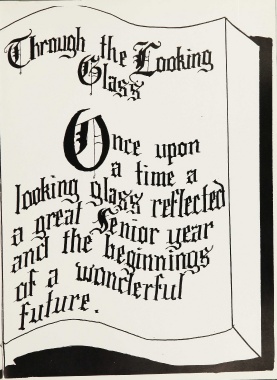 Through the Looking
Glass
Once upon
a time a
looking glass reflected
a great Senior year
and the beginnings
of a wonderful
future.